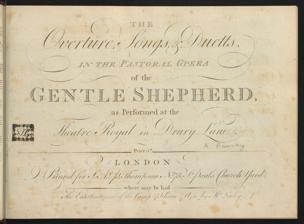 THE
Overture, Songs, & Duetts,
IN THE PASTORAL OPERA
of the
GENTLE SHEPHERD,
as Performed at the
Theatre Royal in Drury Lane
LONDON
Printed for S. A. & P. Thompson No. 75 St. Pauls Church Yard
where may be had